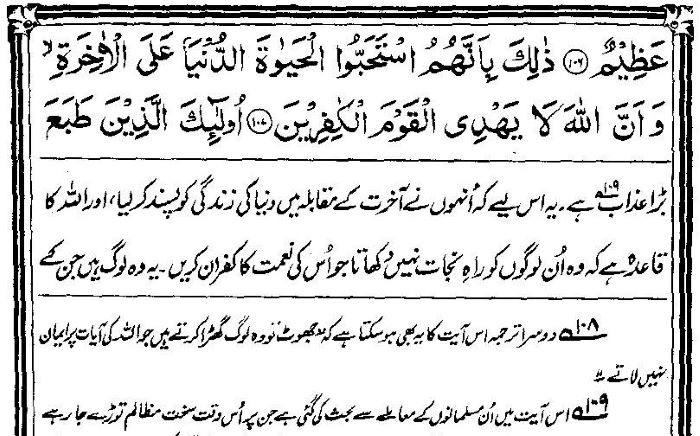 عَظِيْمٌ ﴿۱۰۶﴾ ذٰلِكَ بِاَنَّهُمُ اسْتَحَبُّوا الْحَيٰوةَ الدُّنْيَا عَلَى الْاٰخِرَةِ ۙ
وَاَنَّ اللّٰهَ لَا يَهْدِى الْقَوْمَ الْكٰفِرِيْنَ ﴿۱۰۷﴾ اُولٰٓئِكَ الَّذِيْنَ طَبَعَ
بڑا عذاب۱۰۹ ہے۔ یہ اس لیے کہ اُنہوں نے آخرت کے مقابلہ میں دنیا کی زندگی کو پسند کر لیا، اور اللہ کا
قاعدہ ہے کہ وہ اُن لوگوں کو راہِ نجات نہیں دکھاتا جو اُس کی نعمت کا کفران کریں۔ یہ وہ لوگ ہیں جن کے
۱۰۸ دوسرا ترجمہ اس آیت کا یہ بھی ہو سکتا ہے کہ ”جھوٹ تو وہ لوگ گھڑا کرتے ہیں جو اللہ کی آیات پر ایمان
نہیں لاتے“۔
۱۰۹ اس آیت میں اُن مسلمانوں کے معاملے سے بحث کی گئی ہے جن پر اُس وقت سخت مظالم توڑے جا رہے